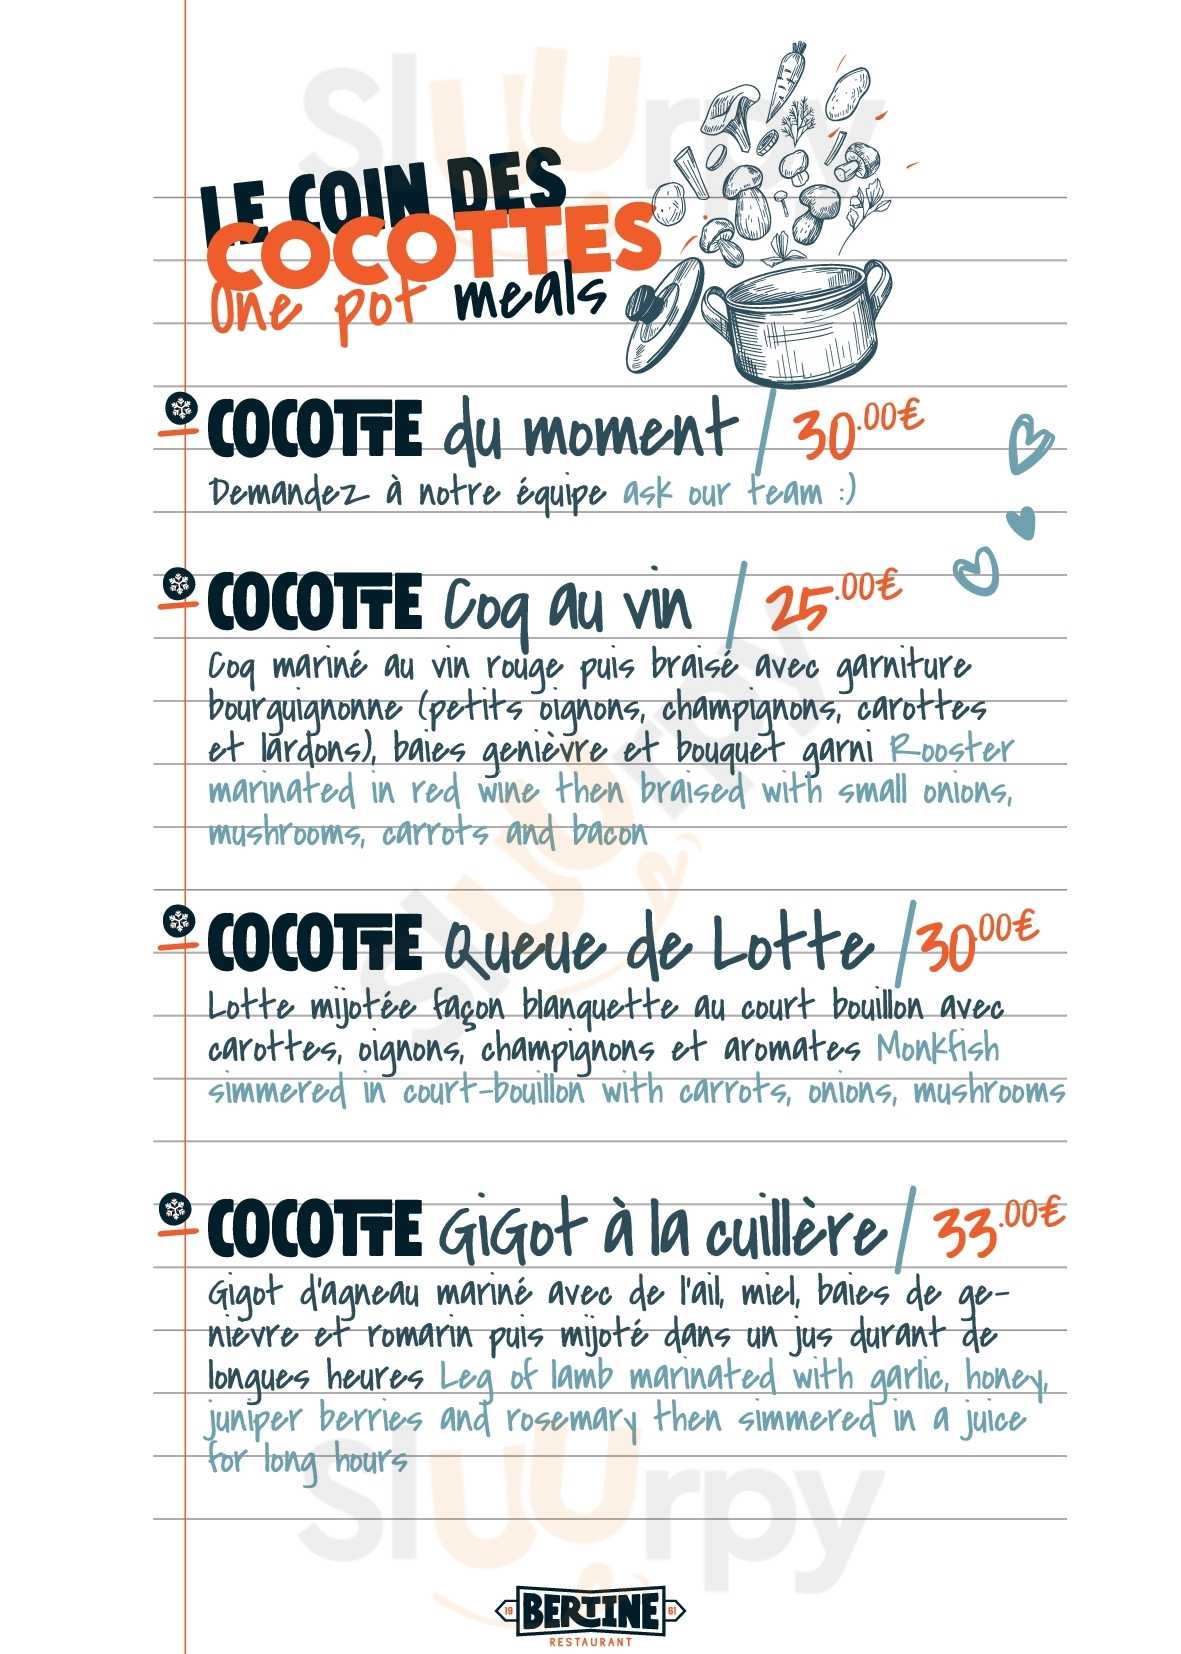 LE COIN DES
COCOTTES
One pot meals
COCOTTE du moment / 30.00€
Demandez à notre équipe ask our team :)
COCOTTE Coq au vin / 25.00€
Coq mariné au vin rouge puis braisé avec garniture
bourguignonne (petits oignons, champignons, carottes
et lardons), baies genièvre et bouquet garni Rooster
marinated in red wine then braised with small onions,
mushrooms, carrots and bacon
COCOTTE Queue de Lotte / 30.00€
Lotte mijotée façon blanquette au court bouillon avec
carottes, oignons, champignons et aromates Monkfish
simmered in court-bouillon with carrots, onions, mushrooms
COCOTTE GiGot à la cuillère / 33.00€
Gigot d'agneau mariné avec de l'ail, miel, baies de ge-
nievre et romarin puis mijoté dans un jus durant de
longues heures Leg of lamb marinated with garlic, honey,
juniper berries and rosemary then simmered in a juice
for long hours
19 BERTINE 61
RESTAURANT
Sluurpy
Sluurpy
Sluurpy